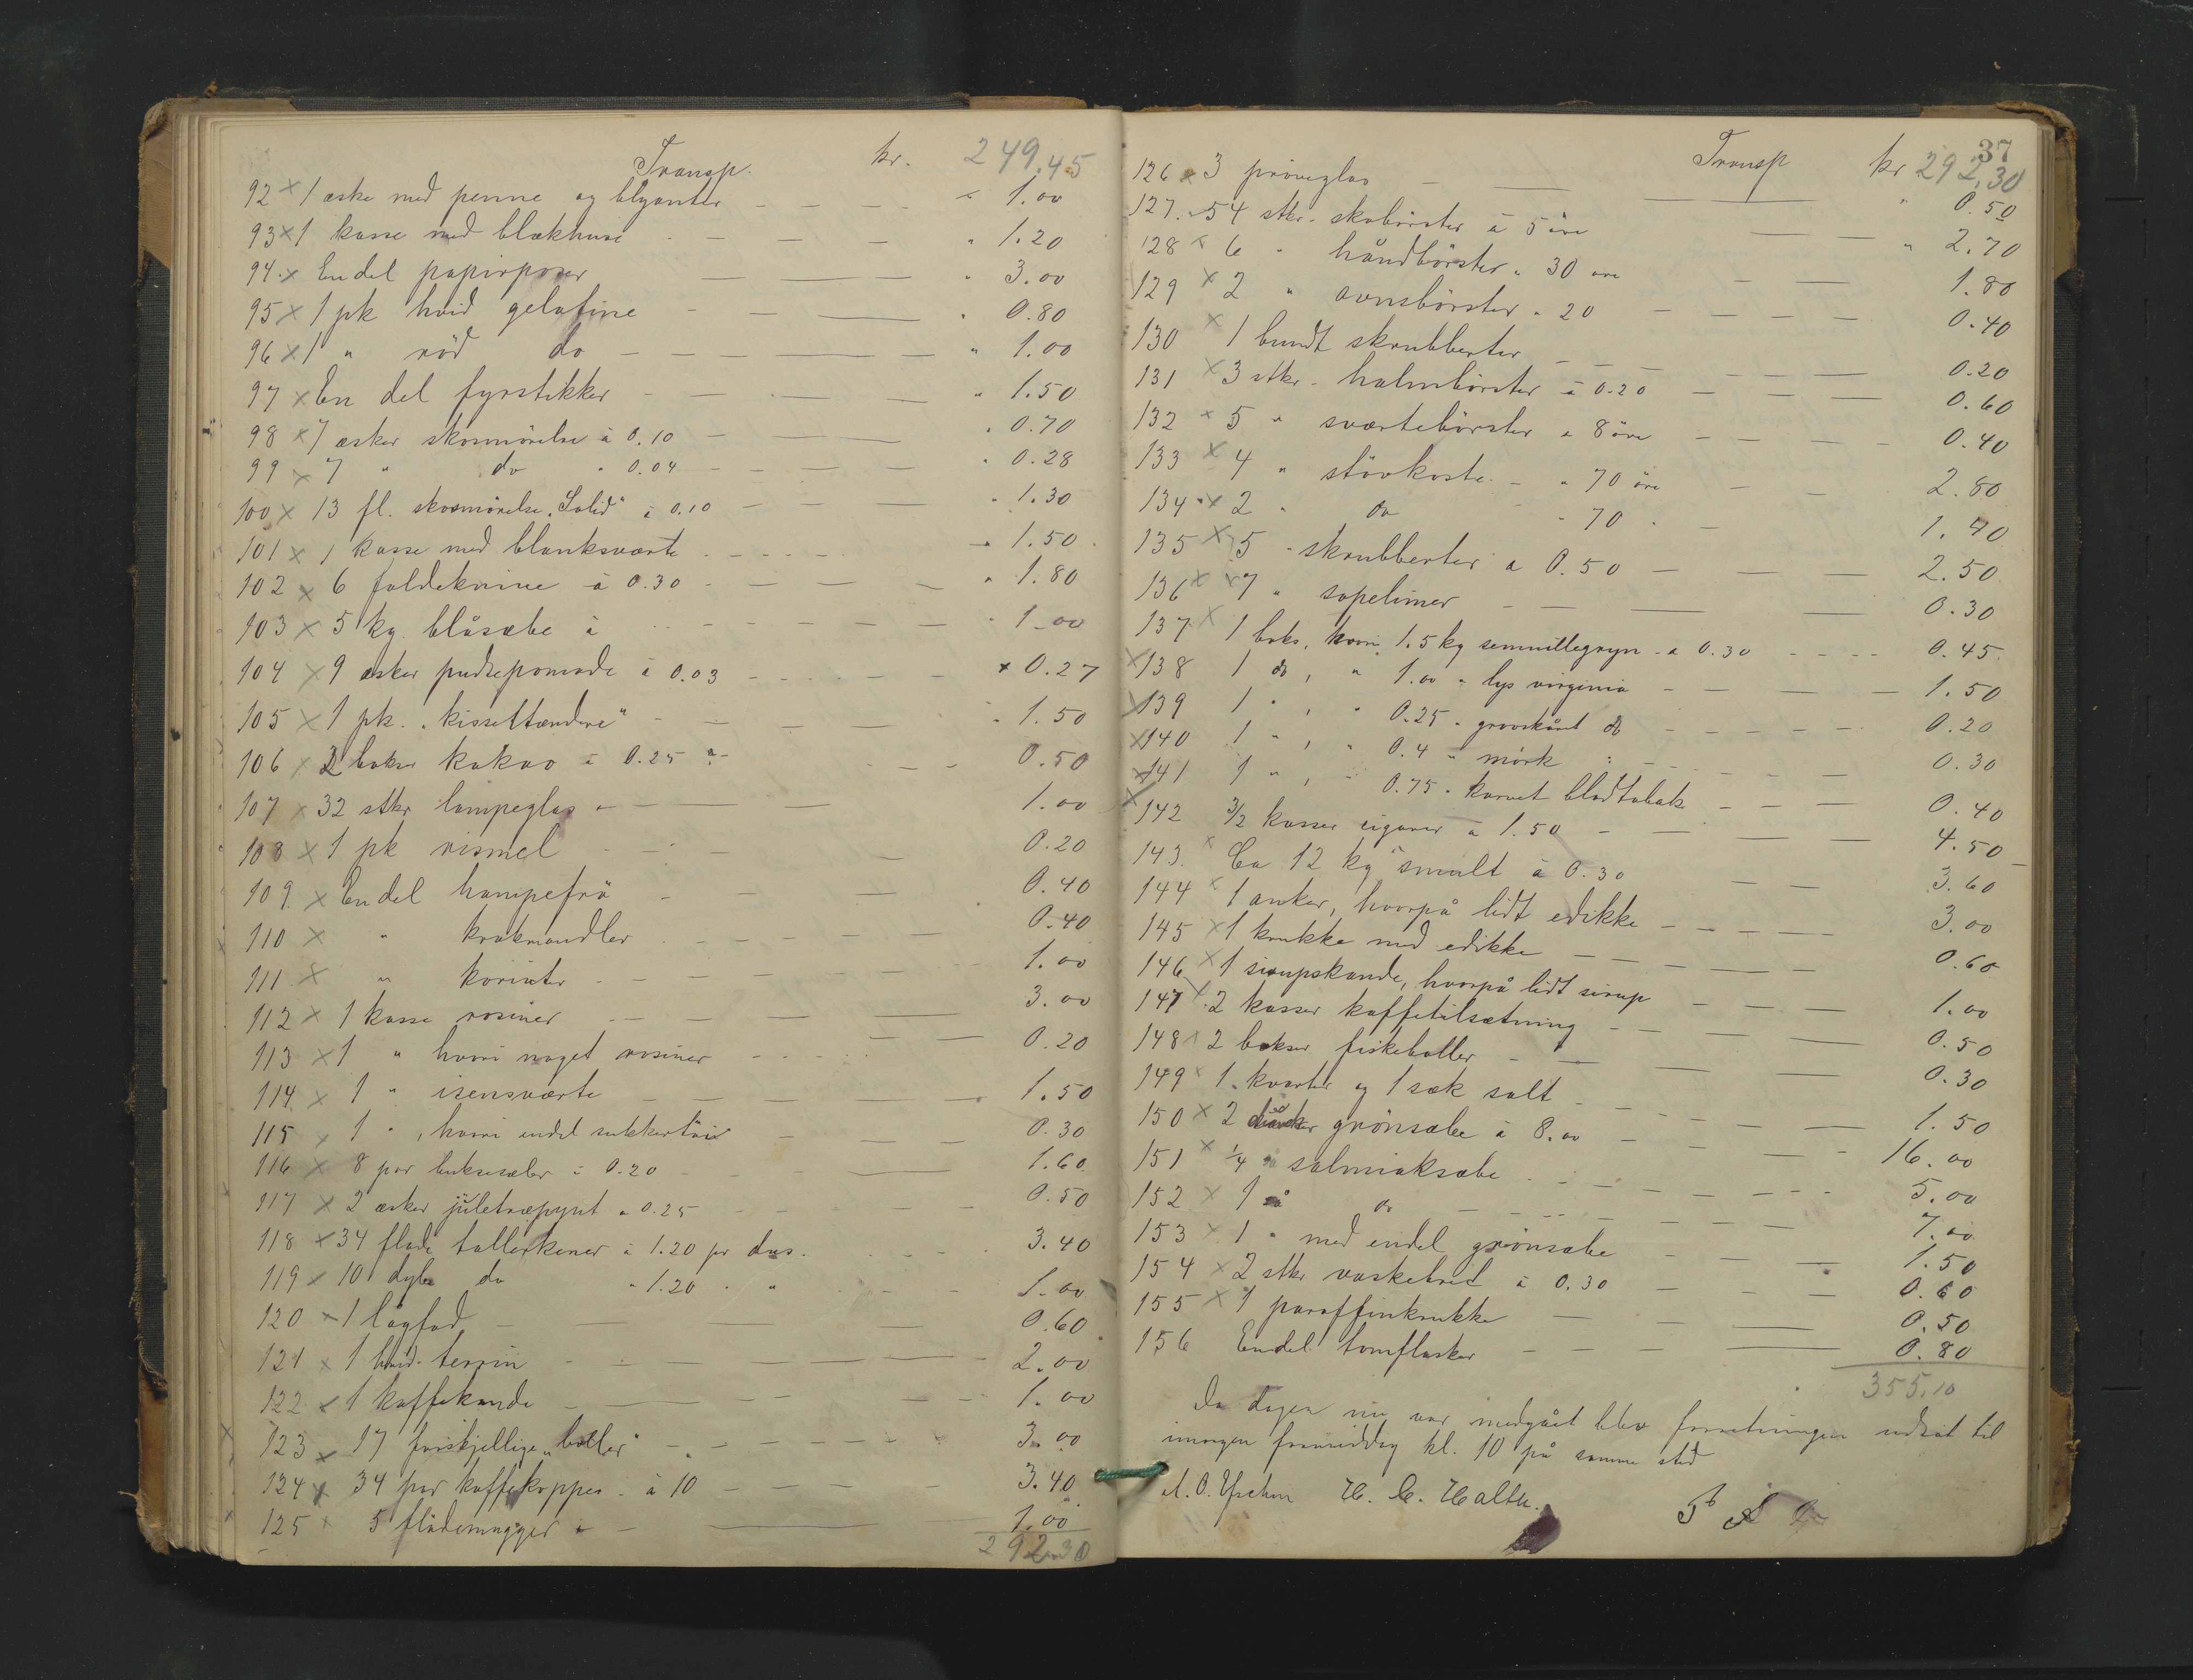 Transp. kr. 249.45
92 x 1 æske med penne og blyanter - - - - " 1.00
93 x 1 kasse med blækhuse - - - - " 1.20
94 x Endel papirposer - - " 3.00
95 x 1 pk hvid gelatine - - - " 0.80
96 x 1 " röd do - - - - " 1.00
97 x En del fyrstikker - - - - " 1.50
98 x 7 æsker skosmörelse à 0.10 - - " 0.70
99 x 7 " do " 0.04 - - - - " 0.28
100 x 13 fl. skosmörelse "Solid" à 0.10 - - - " 1.30
101 x 1 kasse med blanksværte - - - - " 1.50
102 x 6 foldeknive à 0.30 - - - - " 1.80
103 x 5 kg. blåsæbe à - - - - - " 1.00
104 x 9 æsker pudsepomade à 0.03 - - - - - " 0.27
105 x 1 pk. "kissettændere" - - - - " 1.50
106 x 2 bokser kakao à 0.25 - - - 0.50
107 x 32 stkr lampeglas - - - 1.00
108 x 1 pk rismel - - - - 0.20
109. x Endel hampefrö - - - 0.40
110 x " krakmandler - - - - - 0.40
111 x " korinter - - - - - 1.00
112 x 1 kasse rosiner - - - - - 3.00
113 x 1 " hvori noget rosiner - - - - 0.20
114 x 1 " isensværte - - - - - 1.50
115 x 1 " , hvori endel sukkertöi - - - 0.30
116 x 8 par buksesæler à 0.20 - - - - 1.60
117 x 2 æsker juletræpynt a 0.25 - - - - 0.50
118 x 34 flade tallerkener à 1.20 pr dus. - - - 3.40
119 x 10 dybe do " 1.20 " " - - - 1.00
120 x 1 lågfad - - - - 0.60
121 x 1 hvid terrin - - - - 2.00
122 x 1 kaffekande - - - - 1.00
123 x 17 forskjellige "boller" - - - - - 3.00
124 x 34 par kaffekopper - à 10 - - - - - 3.40
125 x 5 flödemugger - - - 1.00
292.30
37
Transp kr 292.30
126 x 3 pröveglas - - - " 0.50
127. 54 stkr. skobörster à 5 öre - - - " 2.70
128 x 6 " håndbörster " 30 öre - - 1.80
129 x 2 " ovnsbörster " 20 - - - - 0.40
130 x 1 bundt skrubberter - - - - 0.20
131 x 3 stkr. halmbörster à 0.20 - - - - 0.60
132 x 5 " sværtebörster a 8 öre - - - - 0.40
133 x 4 " stövkoste - " 70 öre - - 2.80
134 x 2 " do " 70 - - 1.40
135 x 5 " skrubberter a 0.50 - - - 2.50
136 x 7 " sopelimer - - - - 0.30
137 x 1 boks, hvori 1.5 kg semuillegryn a 0.30 - - - - 0.45
x138 1 do, " 1.00 " lys virginia - - - - 1.50
x139 1 " , " 0.25 " grovskåret do - - - - - 0.20
x140 1 " , " 0.4 " mörk " - - - - - 0.30
x141 1 " , " 0.75 " karvet bladtobak - - - - 0.40
x142 3/2 kasser cigarer à 1.50 - - - - 4.50
143. x Ca 12 kg smult à 0.30 - - 3.60
144 x 1 anker, hvorpå lidt edikke - - - - - 3.00
145 x 1 krukke med edikke - - - - - 0.60
146 x 1 sirupskande, hvorpå lidt sirup - - - 1.00
147 x 2 kasser kaffetilsætning - - - - 0.50
148 x 2 bokser fiskeboller - - - - 0.30
149 x 1 kvarter og 1 sæk salt - - - - - 1.50
150 x 2 grönsæbe à 8.00 - - - - - 16.00
151 x 1/4 så salmiaksæbe - - - - - - 5.00
152 x 1 så do - - - - - - 7.00
153 x 1 " med endel grönsæbe - - - 1.50
154 x 2 stkr vaskebret à 0.30 - - - - 0.60
155 x 1 paraffinkrukke - - - - 0.50
156 Endel tomflasker - - - - 0.80
355.10
Da dagen nu var medgået blev forretningen udsat til
imorgen formiddag kl. 10 på samme sted